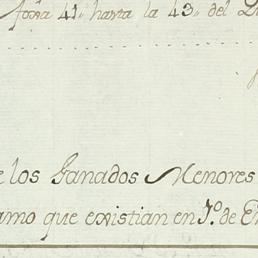 foxa 41. hasta la 43. del
e los Ganados Menores
amo que existian en 1.º de En